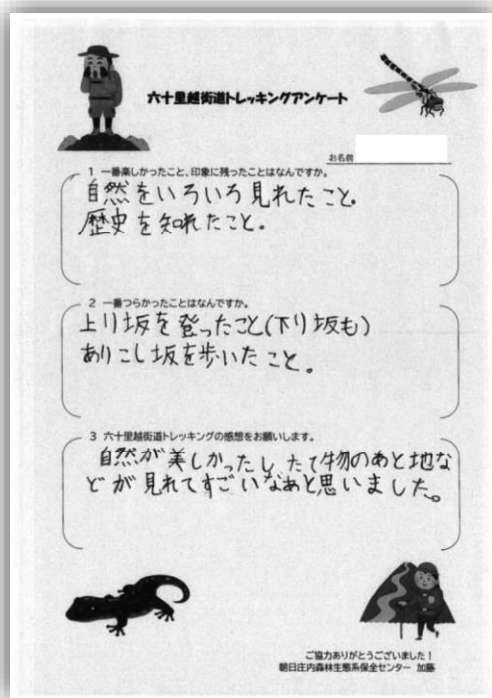 六十里越街道トレッキングアンケート
お名前
1 一番楽しかったこと、印象に残ったことはなんですか。
自然をいろいろ見れたこと。
歴史を知れたこと。
2 一番つらかったことはなんですか。
上り坂を登ったこと(下り坂も)
ありこし坂を歩いたこと。
3 六十里越街道トレッキングの感想をお願いします。
自然が美しかったし、たて物のあと地な
どが見れてすごいなあと思いました。
ご協力ありがとうございました！
朝日庄内森林生態系保全センター 加藤